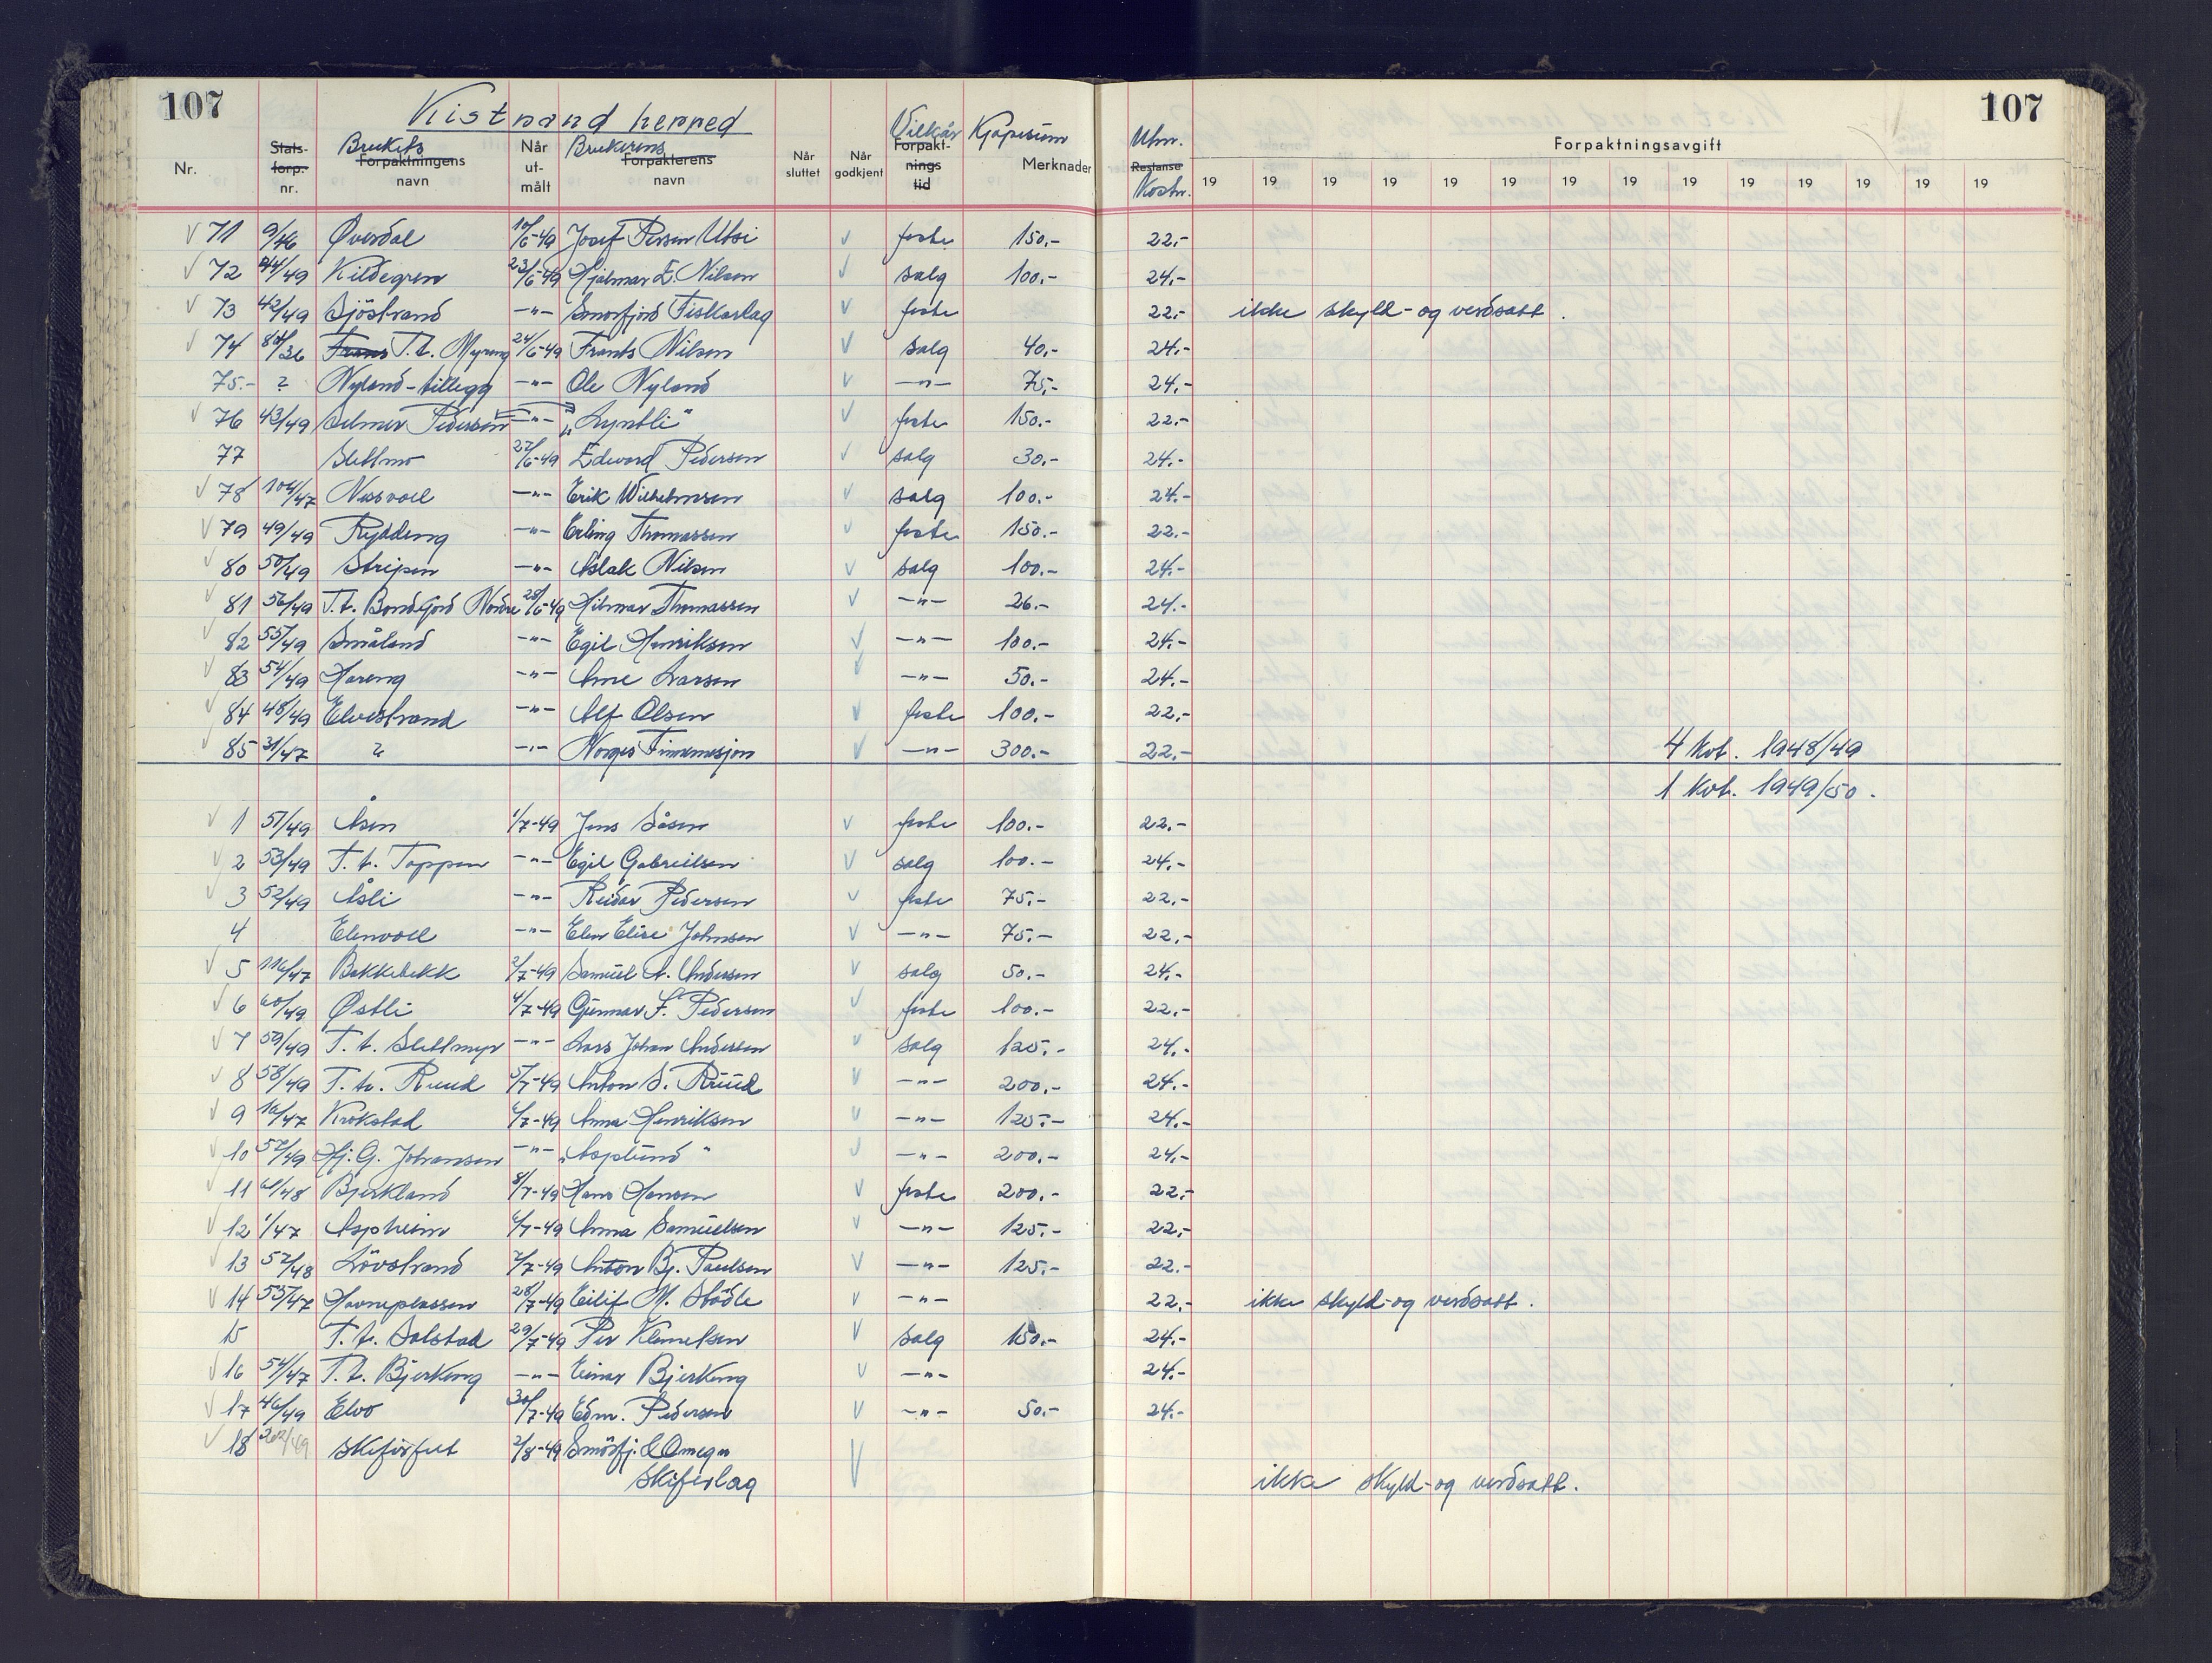 107
107
Kistrand herred
Nr.
Stats-forp. nr.
Brukets
Forpaktningens navn
Når ut-målt
Brukerens
Forpakterens navn
Når sluttet
Når godkjent
Vilkår
Forpakt-nings tid
Kjøpesum
Merknader
Utm.
Restanse
Kostn.
Forpaktningsavgift
19 19 19 19 19 19 19 19 19 19 19 19 19 19
√ 71 9/46 Øverdal 10/6-49 Josef Persen Utsi √ feste 150.- 22.-
√ 72 44/49 Kildegren 23/6-49 Hjalmar E. Nilsen √ salg 100.- 24.-
√ 73 42/49 Sjöstrand -"- Smorfjord Fiskarlag √ feste 22.- ikke skyld- og verdsatt.
√ 74 84/36 Frans T.t. Myreng 24/6-49 Frants Nilsen √ salg 40.- 24.-
75.- ? Nyland-tillegg -"- Ole Nyland √ -"- 75.- 24.-
√ 76 43/49 Selmer Pedersen -"- "Lyntli" √ feste 150.- 22.-
77 Slettmo 27/6-49 Edvard Pedersen √ salg 30.- 24.-
√ 78 104/47 Nessvoll -"- Erik Wilhelmsen √ salg 100.- 24.-
√ 79 49/49 Ryddeng -"- Erling Thomassen √ feste 150.- 22.-
√ 80 50/49 Stripen -"- Aslak Nilsen √ salg 100.- 24.-
√ 81 56/49 T.t. Bondegord Nordre 28/6-49 Hilmar Thomassen √ -"- 26.- 24.-
√ 82 55/49 Småland -"- Egil Henriksen √ -"- 100.- 24.-
√ 83 54/49 Hareng -"- Arne Larsen √ -"- 50.- 24.-
√ 84 48/49 Elvestrand -"- Alf Olsen √ feste 100.- 22.-
√ 85 31/47 ? -"- Norges Finnemisjon √ -"- 300.- 22.- 4 kvt. 1948/49
1 kvt. 1949/50.
√ 1 51/49 Åsen 1/7-49 Jens Såsen √ feste 100.- 22.-
√ 2 53/49 T.t. Toppen -"- Egil Gabrielsen √ salg 100.- 24.-
√ 3 52/49 Åsli -"- Reidar Pedersen √ feste 75.- 22.-
4 Elenvoll -"- Elen Elise Johnsen √ -"- 75.- 22.-
√ 5 116/47 Bakkebekk 2/7-49 Samuel A. Andersen √ salg 50.- 24.-
√ 6 60/49 Østli 4/7-49 Gunnar F. Pedersen √ feste 100.- 22.-
√ 7 59/49 T.t. Slettmyr -"- Lars Johan Andersen √ salg 125.- 24.-
√ 8 58/49 T.t. Ruud 5/7-49 Anton S. Ruud √ -"- 200.- 24.-
√ 9 16/47 Krokstad 6/7-49 Anna Henriksen √ -"- 125.- 24.-
√ 10 57/49 Hj. G. Johansen -"- "Asplund" √ -"- 200.- 24.-
√ 11 61/48 Bjerkland 8/7-49 Hans Hansen √ feste 200.- 22.-
√ 12 1/47 Aspheim 6/7-49 Anna Samuelsen √ -"- 125.- 22.-
√ 13 57/48 Lövstrand 7/7-49 Anton Bj. Paulsen √ -"- 125.- 22.-
√ 14 55/47 Havneplassen 28/7-49 Eilif M. Stödle √ -"- 22.- ikke skyld- og verdsatt.
15 T.t. Solstad 29/7-49 Per Klemetsen √ salg 150.- 24.-
√ 16 54/47 T.t. Bjerkeng -"- Einar Bjerkeng √ -"- 24.-
√ 17 46/49 Elvo 30/7-49 Edm. Pedersen √ -"- 50.- 24.-
√ 18 202/49 Skiferfelt 2/8-49 Smörfj. & Omegn √
Skiferlag ikke skyld- og verdsatt.